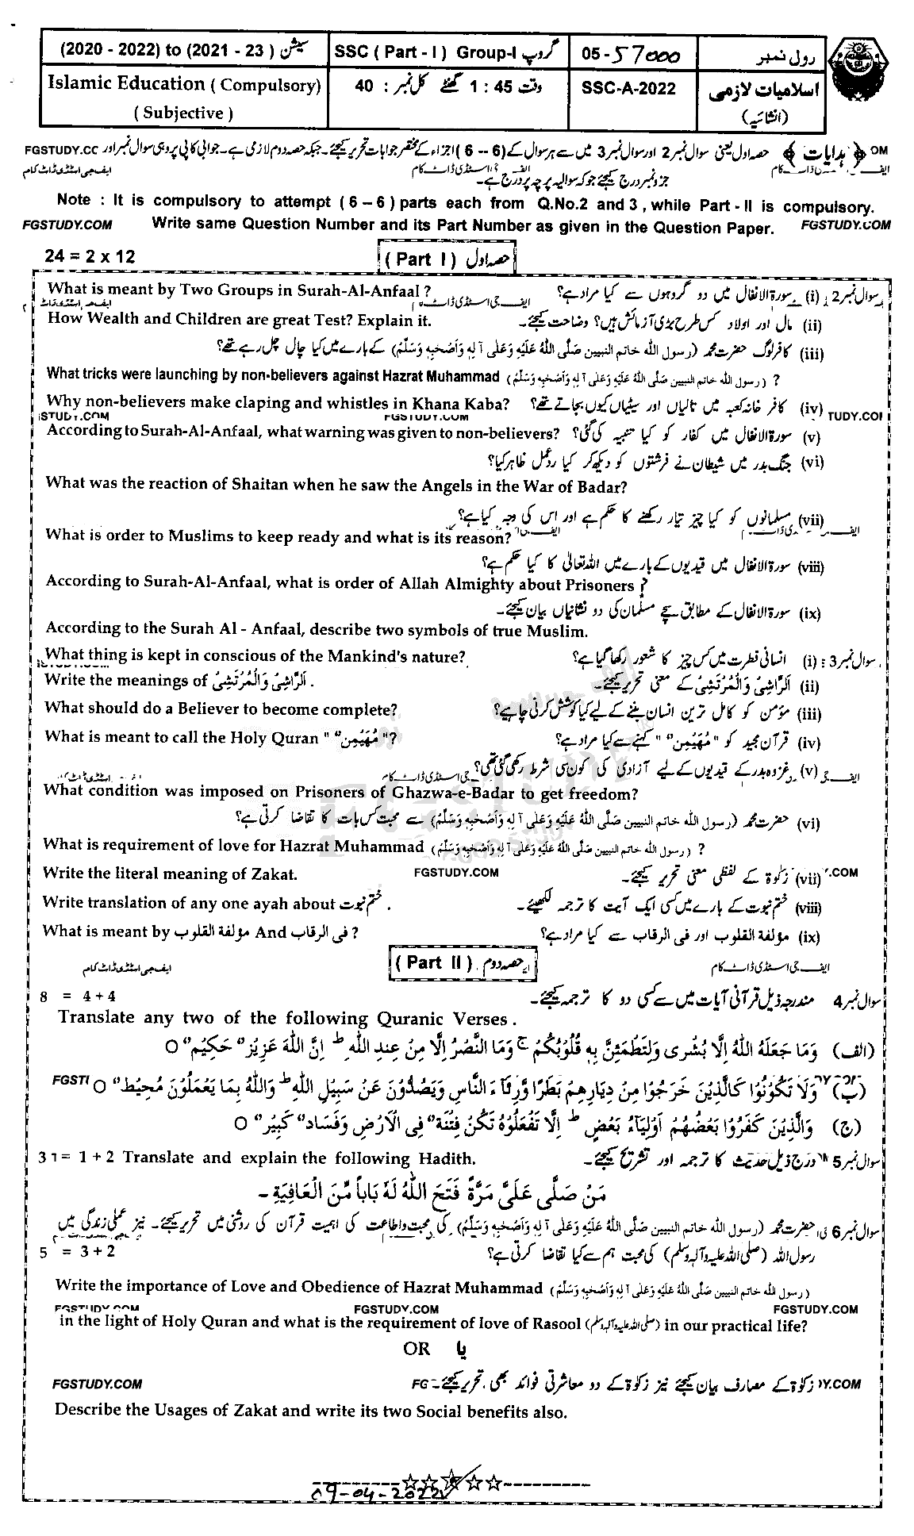 (2020 - 2022) to (2021 - 23) سیشن
SSC ( Part - I ) Group-I گروپ
05 - 57000
رول نمبر
Islamic Education ( Compulsory)
( Subjective )
وقت 1 : 45 گھنٹے کل نمبر : 40
SSC-A-2022
اسلامیات لازمی
(انشائیہ)
﴿ ہدایات ﴾ حصہ اول یعنی سوال نمبر 2 اور سوال نمبر 3 میں سے ہر سوال کے (6 -- 6) اجزاء کے مختصر جوابات تحریر کیجئے۔ جبکہ حصہ دوم لازمی ہے۔ جوابی کاپی پر وہی سوال نمبر اور
FGSTUDY.CC
OM
جزو نمبر درج کیجئے جو کہ سوالیہ پرچہ پر درج ہے۔
Note : It is compulsory to attempt ( 6 – 6 ) parts each from Q.No.2 and 3 , while Part - II is compulsory.
FGSTUDY.COM Write same Question Number and its Part Number as given in the Question Paper. FGSTUDY.COM
24 = 2 x 12
( Part I ) حصہ اول
What is meant by Two Groups in Surah-Al-Anfaal ? سوال نمبر 2 : (i) سورۃ الانفال میں دو گروہوں سے کیا مراد ہے؟
How Wealth and Children are great Test? Explain it. (ii) مال اور اولاد کس طرح بڑی آزمائش ہیں؟ وضاحت کیجئے۔
(iii) کافر لوگ حضرت محمد (رسول اللہ خاتم النبیین صَلَّی اللہُ عَلَیْہِ وَعَلٰی آلِہٖ وَاَصْحٰبِہٖ وَسَلَّمْ) کے بارے میں کیا چال چل رہے تھے؟
What tricks were launching by non-believers against Hazrat Muhammad (رسول اللہ خاتم النبیین صَلَّی اللہُ عَلَیْہِ وَعَلٰی آلِہٖ وَاَصْحٰبِہٖ وَسَلَّمْ) ?
Why non-believers make claping and whistles in Khana Kaba? (iv) کافر خانہ کعبہ میں تالیاں اور سیٹیاں کیوں بجاتے تھے؟
ISTUDY.COM FGSTUDY.COM TUDY.COM
According to Surah-Al-Anfaal, what warning was given to non-believers? (v) سورۃ الانفال میں کفار کو کیا تنبیہ کی گئی؟
(vi) جنگ بدر میں شیطان نے فرشتوں کو دیکھ کر کیا ردعمل ظاہر کیا؟
What was the reaction of Shaitan when he saw the Angels in the War of Badar?
(vii) مسلمانوں کو کیا چیز تیار رکھنے کا حکم ہے اور اس کی وجہ کیا ہے؟
What is order to Muslims to keep ready and what is its reason?
(viii) سورۃ الانفال میں قیدیوں کے بارے میں اللہ تعالیٰ کا کیا حکم ہے؟
According to Surah-Al-Anfaal, what is order of Allah Almighty about Prisoners ?
(ix) سورۃ الانفال کے مطابق سچے مسلمان کی دو نشانیاں بیان کیجئے۔
According to the Surah Al - Anfaal, describe two symbols of true Muslim.
What thing is kept in conscious of the Mankind's nature? سوال نمبر 3 : (i) انسانی فطرت میں کس چیز کا شعور رکھا گیا ہے؟
Write the meanings of اَلرَّاشِیْ وَالْمُرْتَشِیْ . (ii) اَلرَّاشِیْ وَالْمُرْتَشِیْ کے معنی تحریر کیجئے۔
What should do a Believer to become complete? (iii) مؤمن کو کامل ترین انسان بننے کے لیے کیا کوشش کرنی چاہیے؟
What is meant to call the Holy Quran "مُهَيْمِنٌ"? (iv) قرآن مجید کو "مُهَيْمِنٌ" کہنے سے کیا مراد ہے؟
(v) غزوہ بدر کے قیدیوں کے لیے آزادی کی کون سی شرط رکھی گئی تھی؟
What condition was imposed on Prisoners of Ghazwa-e-Badar to get freedom?
(vi) حضرت محمد (رسول اللہ خاتم النبیین صَلَّی اللہُ عَلَیْہِ وَعَلٰی آلِہٖ وَاَصْحٰبِہٖ وَسَلَّمْ) سے محبت کس بات کا تقاضا کرتی ہے؟
What is requirement of love for Hazrat Muhammad (رسول اللہ خاتم النبیین صَلَّی اللہُ عَلَیْہِ وَعَلٰی آلِہٖ وَاَصْحٰبِہٖ وَسَلَّمْ) ?
Write the literal meaning of Zakat. FGSTUDY.COM (vii) زکوٰۃ کے لفظی معنی تحریر کیجئے۔ .COM
Write translation of any one ayah about ختم نبوت . (viii) ختم نبوت کے بارے میں کسی ایک آیت کا ترجمہ لکھیے۔
What is meant by مؤلفة القلوب And فی الرقاب ? (ix) مؤلفة القلوب اور فی الرقاب سے کیا مراد ہے؟
( Part II ) حصہ دوم
ایف جی اسٹڈی ڈاٹ کام ایف جی اسٹڈی ڈاٹ کام
8 = 4 + 4 سوال نمبر 4 مندرجہ ذیل قرآنی آیات میں سے کسی دو کا ترجمہ کیجئے۔
Translate any two of the following Quranic Verses .
(الف) وَمَا جَعَلَهُ اللّٰهُ اِلَّا بُشْرٰى وَلِتَطْمَئِنَّ بِهٖ قُلُوْبُكُمْ ۚ وَمَا النَّصْرُ اِلَّا مِنْ عِنْدِ اللّٰهِ ؕ اِنَّ اللّٰهَ عَزِيْزٌ حَكِيْمٌ ○
(ب) وَلَا تَكُوْنُوْا كَالَّذِيْنَ خَرَجُوْا مِنْ دِيَارِهِمْ بَطَرًا وَّرِئَآءَ النَّاسِ وَيَصُدُّوْنَ عَنْ سَبِيْلِ اللّٰهِ ؕ وَاللّٰهُ بِمَا يَعْمَلُوْنَ مُحِيْطٌ ○ FGSTI
(ج) وَالَّذِيْنَ كَفَرُوْا بَعْضُهُمْ اَوْلِيَآءُ بَعْضٍ ؕ اِلَّا تَفْعَلُوْهُ تَكُنْ فِتْنَةٌ فِى الْاَرْضِ وَفَسَادٌ كَبِيْرٌ ○
3 = 1 + 2 Translate and explain the following Hadith. سوال نمبر 5 درج ذیل حدیث کا ترجمہ اور تشریح کیجئے۔
مَنْ صَلّٰى عَلَىَّ مَرَّةً فَتَحَ اللّٰهُ لَهٗ بَاباً مِّنَ الْعَافِيَةِ ۔
سوال نمبر 6 حضرت محمد (رسول اللہ خاتم النبیین صَلَّی اللہُ عَلَیْہِ وَعَلٰی آلِہٖ وَاَصْحٰبِہٖ وَسَلَّمْ) کی محبت واطاعت کی اہمیت قرآن کی روشنی میں تحریر کیجئے۔ نیز عملی زندگی میں
5 = 3 + 2 رسول اللہ (صلی اللہ علیہ وآلہ وسلم) کی محبت ہم سے کیا تقاضا کرتی ہے؟
Write the importance of Love and Obedience of Hazrat Muhammad (رسول اللہ خاتم النبیین صَلَّی اللہُ عَلَیْہِ وَعَلٰی آلِہٖ وَاَصْحٰبِہٖ وَسَلَّمْ)
FGSTUDY.COM FGSTUDY.COM FGSTUDY.COM
in the light of Holy Quran and what is the requirement of love of Rasool (صلی اللہ علیہ وآلہ وسلم) in our practical life?
OR یا
FGSTUDY.COM FG زکوٰۃ کے مصارف بیان کیجئے نیز زکوٰۃ کے دو معاشرتی فوائد بھی تحریر کیجئے۔ Y.COM
Describe the Usages of Zakat and write its two Social benefits also.
09-04-2022